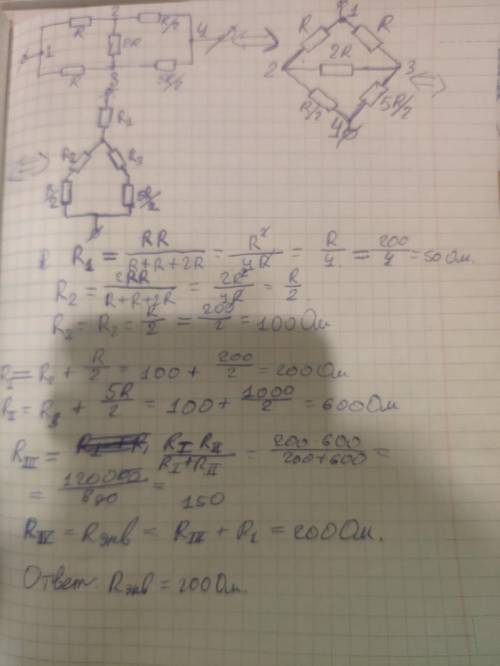 R 2 R/2
1 2R 4
R 3 5R/2
1
R R
2 2R 3
R/2 5R/2
4
R1
R2 R3
R/2 5R/2
R1 = RR/(R+R+2R) = R²/4R = R/4 = 200/4 = 50 Ом.
R2 = 2RR/(R+R+2R) = 2R²/4R = R/2.
R3 = R2 = R/2 = 200/2 = 100 Ом
RI = R2 + R/2 = 100 + 200/2 = 200 Ом
RII = R3 + 5R/2 = 100 + 1000/2 = 600 Ом
RIII = RI RII/(RI+RII) = 200 600/(200+600) =
= 120000/800 = 150
RIV = Rэкв = RIII + R1 = 200 Ом.
Ответ: Rэкв = 200 Ом.